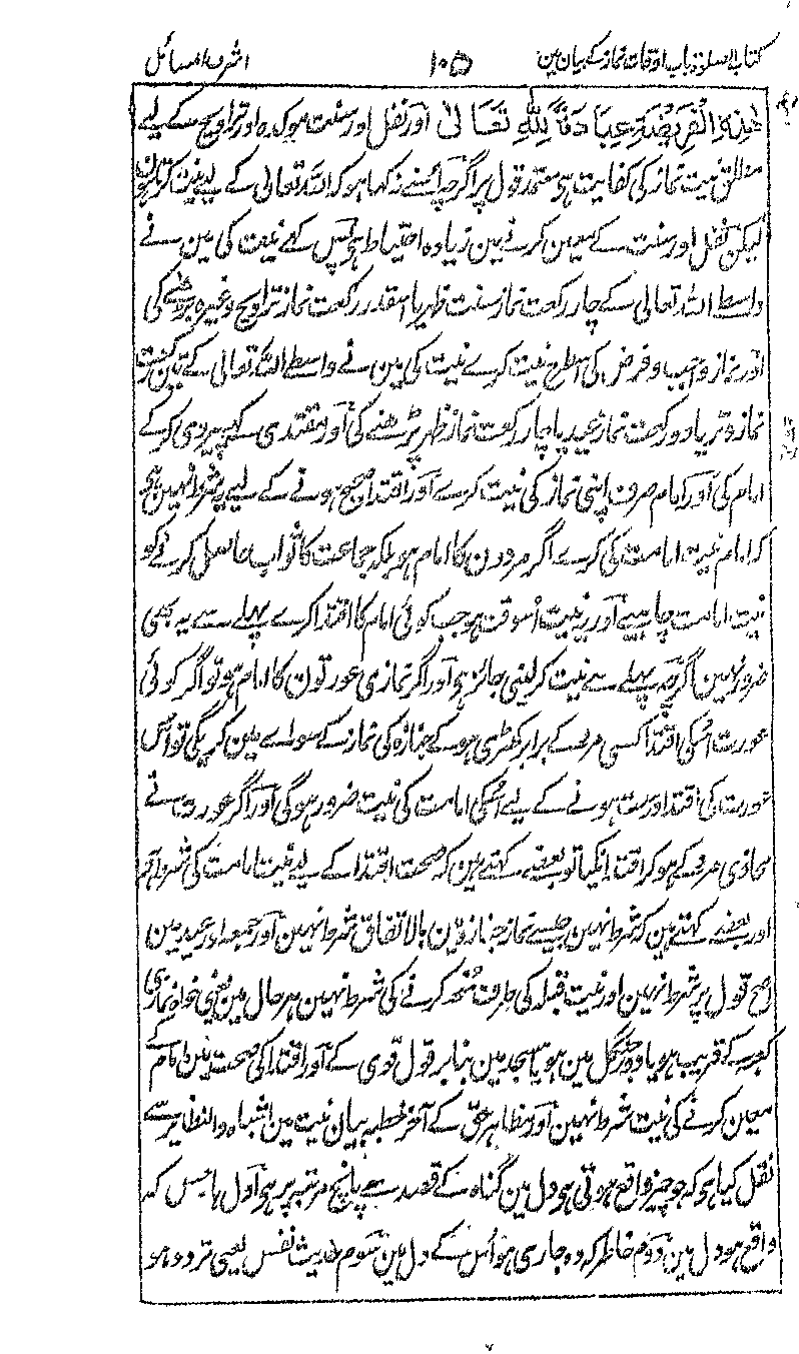 کتاب الصلوۃ باب اوقات نماز کے بیان مین ۱۰۵ اشرف المسائل
ھٰذِہِ الْفَرِیْضَۃِ عِبَادَۃً لِلّٰہِ تَعَالیٰ اور نفل اور سنت موکدہ اور تراویح کے لیے
مطلق نیت نماز کی کفایت ہو معتمد قول پر اگرچہ اسنے نہ کہا ہو کہ اللہ تعالی کے لیے نیت کرتا ہون
لیکن نفل اور سنت کے معین کرنے مین زیادہ احتیاط ہو پس کہے نیت کی مین نے
واسطے اللہ تعالی کے چار رکعت نماز سنت ظہر یا اسقدر رکعت نماز تراویح وغیرہ پڑھنے کی
اور نماز واجب و فرض کی اسطرح نیت کرے نیت کی مین نے واسطے اللہ تعالی کے تین رکعت
نماز وتر یا دو رکعت نماز عید یا چار رکعت نماز ظہر پڑھنے کی اور مقتدی کہے پیروی کرکے
امام کی اور امام صرف اپنی نماز کی نیت کرے اور اقتدا صحیح ہونے کے لیے یہ شرط نہین ہو
کہ امام نیت امامت کی کرے اگر مردون کا امام ہو بلکہ جماعت کا ثواب حاصل کرنے کو
نیت امامت چاہیے اور یہ نیت اُسوقت ہو جب کوئی امام کا اقتدا کرے پہلے سے یہ بھی
ضرور نہین اگرچہ پہلے سے نیت کر لینی جائز ہو اور اگر نمازی عورتون کا امام ہو تو اگر کوئی
عورت اُسکی اقتدا کسی مرد کے برابر کھڑی ہو کے جنازہ کی نماز کے سوا مین کریگی تو اُس
عورت کی اقتدا درست ہونے کے لیے اُسکی امامت کی نیت ضرور ہوگی اور اگر عورت نے
محاذی مرد کے ہو کر اقتدا نکیا تو بعضے کہتے ہین کہ صحت اقتدا کے لیے نیت امامت کی شرط ہو
اور بعضے کہتے ہین کہ شرط نہین جیسے نماز جنازہ مین بالاتفاق شرط نہین اور جمعہ اور عیدین مین
اصح قول پر شرط نہین اور نیت قبلہ کی طرف مُنھ کرنے کی شرط نہین ہر حال مین یعنی خواہ نمازی
کعبہ کے قریب ہو یا دور جنگل مین ہو یا مسجد مین بنا بر قول قوی کے اور اقتدا کی صحت مین امام کے
معین کرنے کی نیت شرط نہین اور مظاہر حق کے آخر خطبہ بیان نیت مین اشباہ والنظایر سے
نقل کیا ہو کہ جو چیز واقع ہوتی ہو دل مین گناہ کے قصد سے پانچ مرتبہ پر ہو اول ہاجس کہ
واقع ہو دل مین دوم خاطر کہ وہ جاری ہو اُس کے دل مین سوم حدیث نفس یعنی تردد ہو